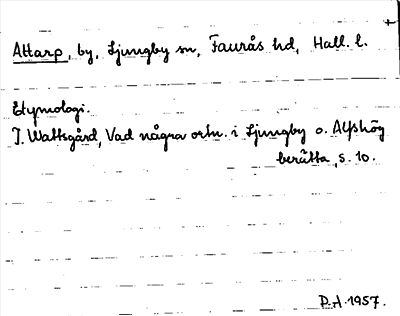 Attarp, by, Ljungby sn, Faurås hd, Hall. l.
Etymologi.
J. Wattsgård, Vad några ortn. i Ljungby o. Alfshög
berätta, s. 10.
P.A. 1957.